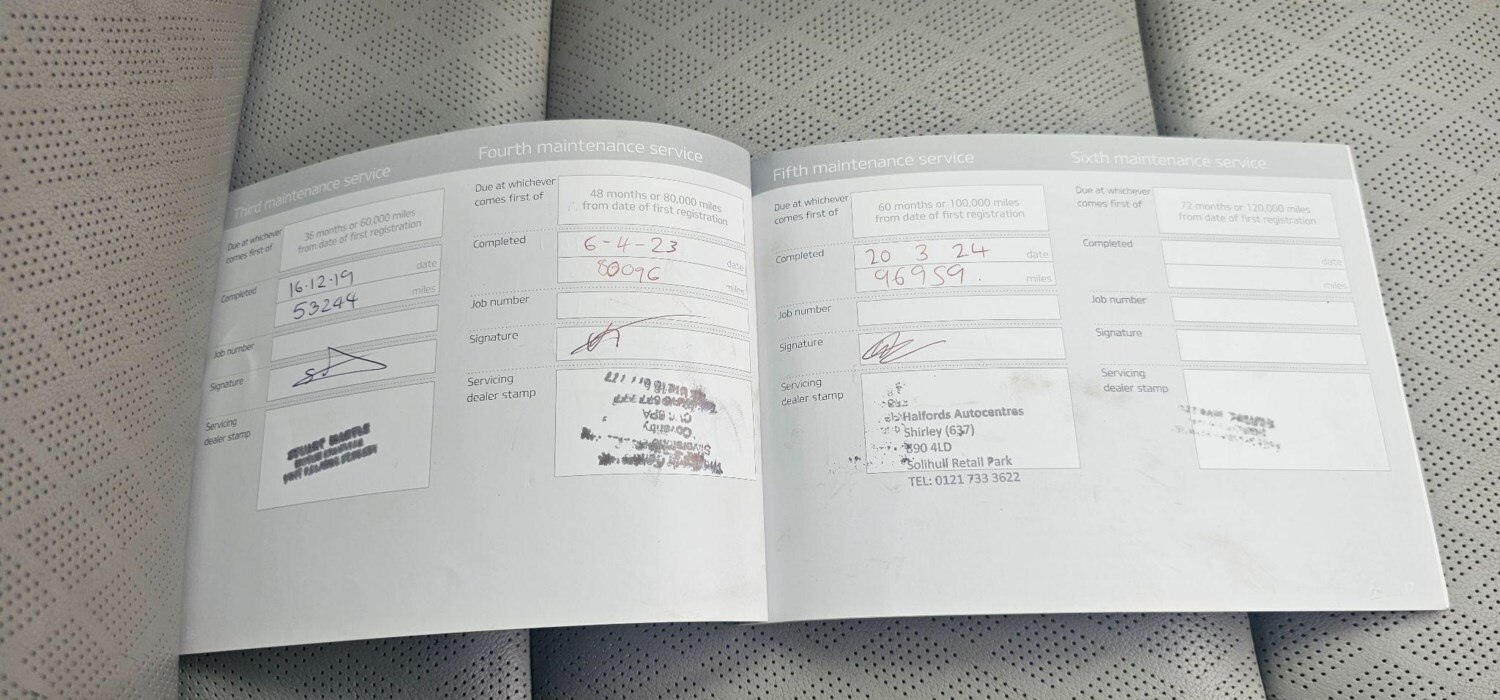 Third maintenance service
Due at whichever
comes first of
36 months or 60,000 miles
from date of first registration
Completed
16.12.19
date
53244
miles
Job number
Signature
Servicing
dealer stamp
Fourth maintenance service
Due at whichever
comes first of
48 months or 80,000 miles
from date of first registration
Completed
6-4-23
date
80096
miles
Job number
Signature
Servicing
dealer stamp
Coventry
Fifth maintenance service
Due at whichever
comes first of
60 months or 100,000 miles
from date of first registration
Completed
20 3 24
date
96959.
miles
Job number
Signature
Servicing
dealer stamp
Halfords Autocentres
Shirley (637)
B90 4LD
Solihull Retail Park
TEL: 0121 733 3622
Sixth maintenance service
Due at whichever
comes first of
72 months or 120,000 miles
from date of first registration
Completed
date
miles
Job number
Signature
Servicing
dealer stamp